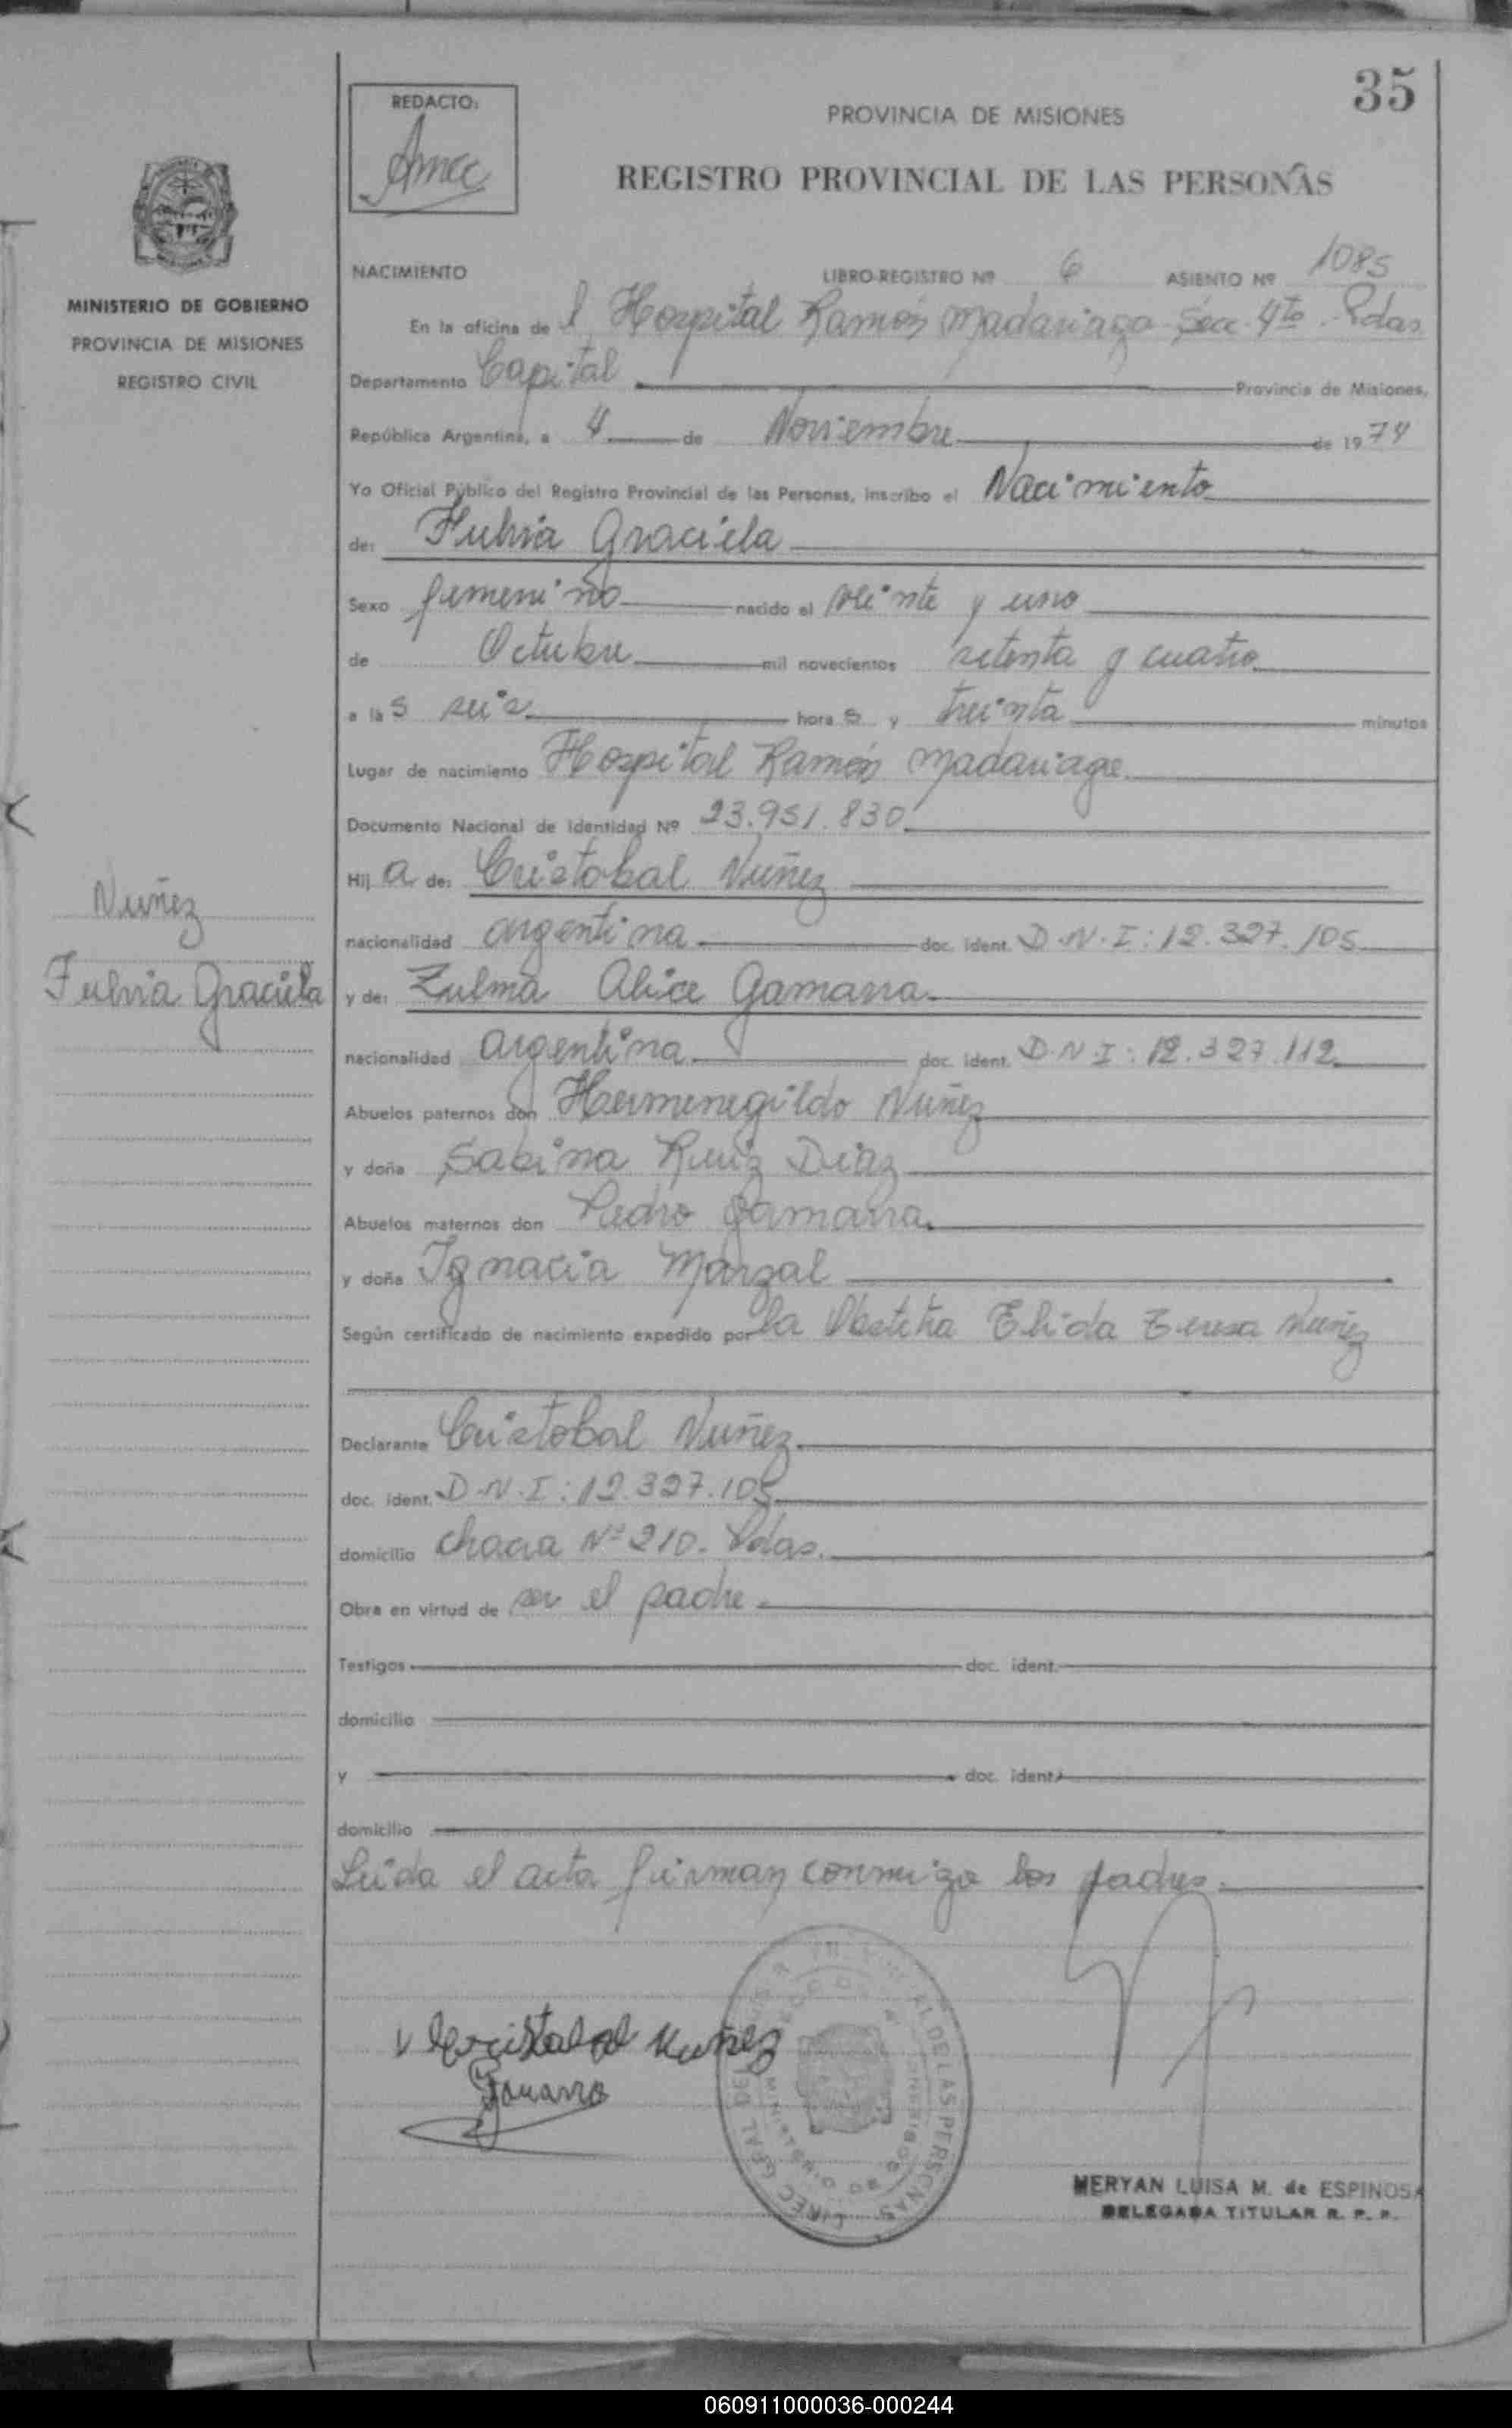 35
REDACTO:
Amcc
PROVINCIA DE MISIONES
REGISTRO PROVINCIAL DE LAS PERSONAS
MINISTERIO DE GOBIERNO
PROVINCIA DE MISIONES
REGISTRO CIVIL
NACIMIENTO LIBRO-REGISTRO Nº 6 ASIENTO Nº 1085
En la oficina de l Hospital Ramón Madariaga Sec. 4ta. Pdas
Departamento Capital Provincia de Misiones,
República Argentina, a 4 de Noviembre de 1974
Yo Oficial Público del Registro Provincial de las Personas, inscribo el Nacimiento
de: Fulvia Graciela
Sexo femenino nacido el veinte y uno
de Octubre mil novecientos setenta y cuatro
a las seis horas y treinta minutos
Lugar de nacimiento Hospital Ramón Madariaga
Documento Nacional de Identidad Nº 23.951.830
Hija de: Cristobal Nuñez
nacionalidad argentina doc. ident. D.N.I: 12.327.105
y de: Zulma Alice Gamarra
nacionalidad argentina doc. ident. D.N.I: 12.327.112
Abuelos paternos don Hermenegildo Nuñez
y doña Sabina Ruiz Diaz
Abuelos maternos don Pedro Gamarra
y doña Ignacia Marzal
Según certificado de nacimiento expedido por la Obstetra Elida Teresa Nuñez
Declarante Cristobal Nuñez
doc. ident. D.N.I: 12.327.105
domicilio chacra Nº 210. Pdas.
Obra en virtud de ser el padre
Testigos doc. ident.
domicilio
y doc. ident.
domicilio
Leida el acta firman conmigo los padres
Nuñez
Fulvia Graciela
Cristobal Nuñez
Gamarra
MERYAN LUISA M. de ESPINOSA
DELEGADA TITULAR R. P. P.
060911000036-000244